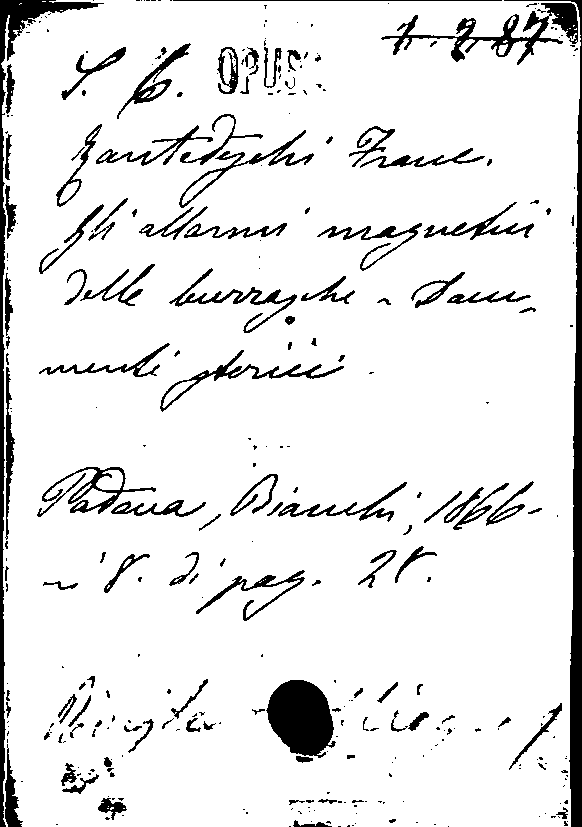 1. 2. 87
S. C. OPUS.
Zantedeschi Franc.
Gli allarmi magnetici
delle burrasche - Docu-
menti storici
Padova, Bianchi, 1866-
in 8. di pag. 28.